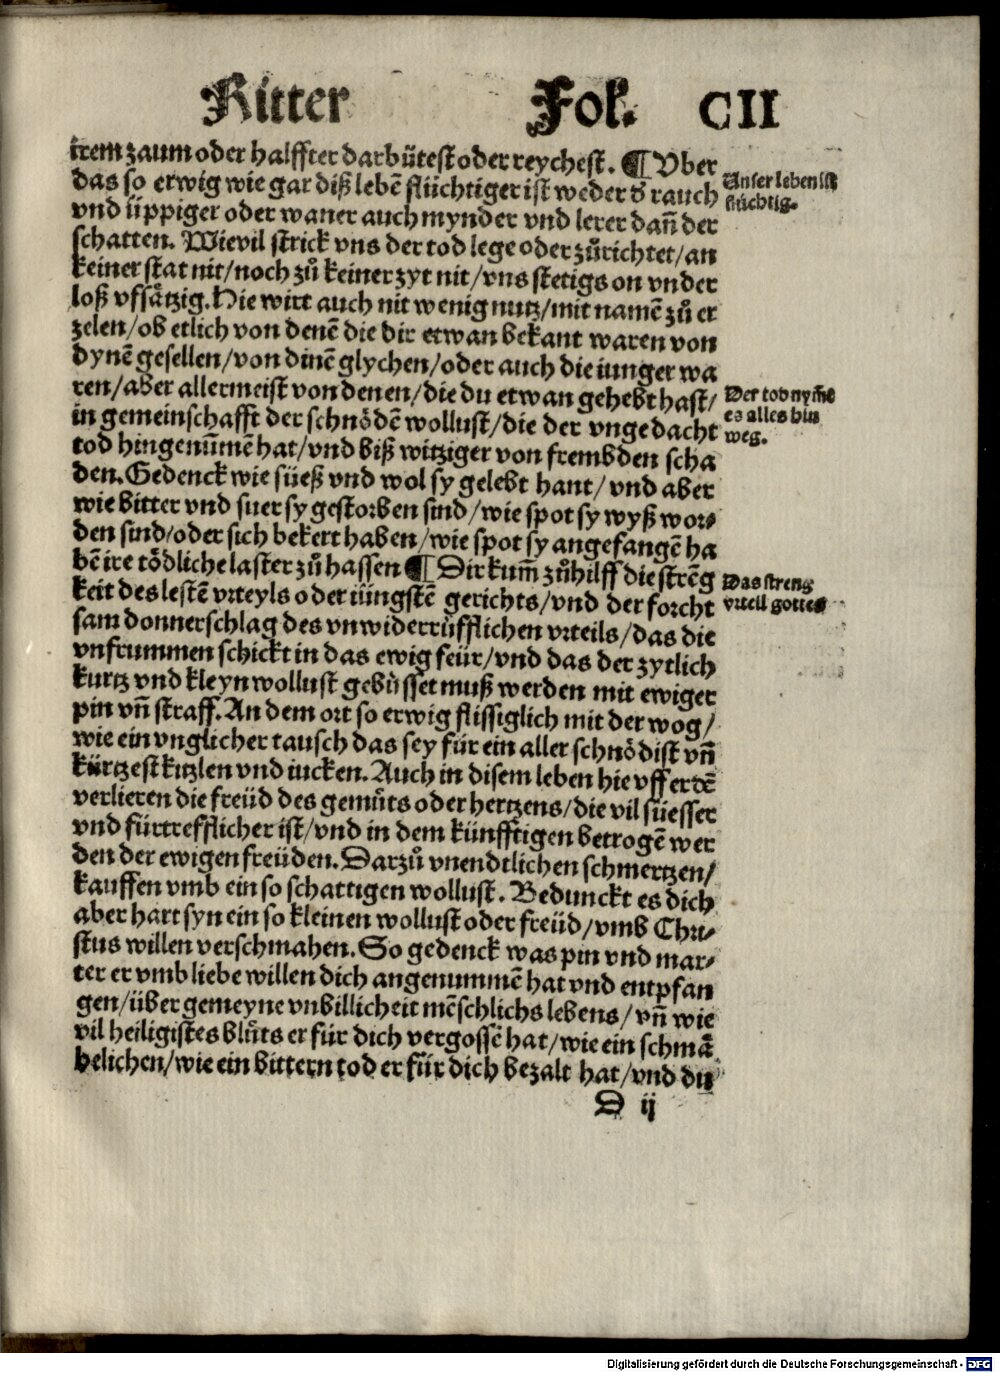 Ritter Fol. CII
irem zaum oder halffter darbütest oder reychest. ¶ Vber
das so erwig wie gar diß lebē flüchtiger ist weder d' rauch
vnd üppiger oder waner auch mynder vnd lerer dañ der
schatten. Wievil strick vns der tod lege oder zůrichtet/an
keiner stat nit/noch zů keiner zyt nit/vns stetigs on vnder
loß vfsätzig. Hie wirt auch nit wenig nutz/mit namē zů er
zelen/ob etlich von denē die dir etwan bekant waren von
dynē gesellen/von dinē glychen/oder auch die iunger wa
ren/aber allermeist von denen/die du etwan gehebt hast/
in gemeinschafft der schnödē wollust/die der vngedacht
tod hingenūmē hat/vnd biß witziger von frembden scha
den. Gedenck wie süeß vnd wol sy gelebt hant/vnd aber
wie bitter vnd suer sy gestorben sind/wie spot sy wyß wor⸗
den sind/oder sich bekert haben/wie spot sy angefangē ha
bē ire tödliche laster zů hassen ¶ Dir kum̄ zůhilff die strēg
keit des lestē vrteyls oder iüngstē gerichts/vnd der forcht
sam donnerschlag des vnwiderrüfflichen vrteils/das die
vnfrummen schickt in das ewig feür/vnd das der zytlich
kurtz vnd kleyn wollust gebüsset muß werden mit ewiger
pin vñ straff. An dem ort so erwig flissiglich mit der wog/
wie ein vnglicher tausch das sey für ein aller schnödist vñ
kürtzest kitzlen vnd iucken. Auch in disem leben hie vff erdē
verlieren die freüd des gemůts oder hertzens/die vil süesser
vnd fürtrefflicher ist/vnd in dem künfftigen betrogē wer
den der ewigen freüden. Darzů vnendtlichen schmertzen/
kauffen vmb ein so schattigen wollust. Bedunckt es dich
aber hart syn ein so kleinen wollust oder freüd/vmb Chri⸗
stus willen verschmahen. So gedenck was pin vnd mar⸗
ter er vmb liebe willen dich angenummē hat vnd entpfan
gen/über gemeyne vnbillicheit mēschlichs lebens/vñ wie
vil heiligistes blůts er für dich vergossē hat/wie ein schmä
helichen/wie ein bittern tod er für dich bezalt hat/vnd du
D ij
Unser leben ist
flüchtig.
Der tod nym̄t
es alles hin
weg.
Das streng
vrteil gottes
Digitalisierung gefördert durch die Deutsche Forschungsgemeinschaft - DFG